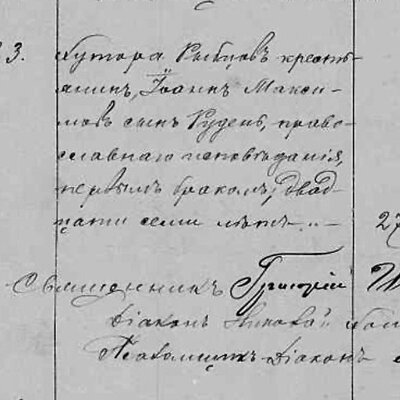 3. Хутора Рыбцовъ кресть-
янинъ, Іоаннъ Макси-
мовъ сынъ Рудень, право-
славнаго исповѣданія,
первымъ бракомъ, двад-
цати семи лѣтъ
27
Священникъ Григорій
Діаконъ Николай
Псаломщикъ Діаконъ